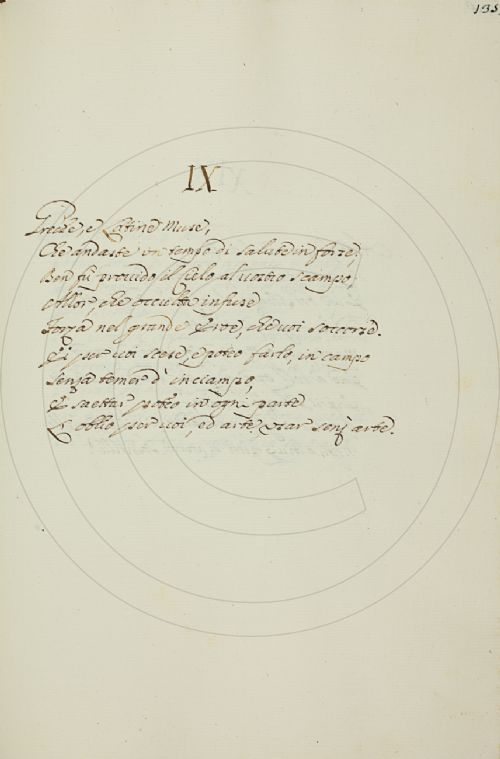 135
IX
Greche, e Latine Muse,
Che andaste un tempo di salute in forse.
Ben fù provido il Cielo al vostro scampo,
Allor, che occulta infuse
Forza nel grande Erte, che voi soccorse.
Ei per voi scese, e poteo farlo, in campo
Senza temer d'inciampo,
E saettar poteo in ogni parte
L'obblio per voi, ed arte usar senz'arte.